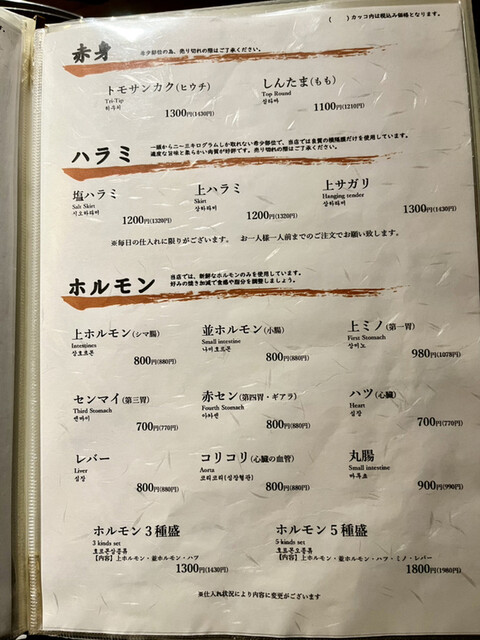 ( ) カッコ内は税込み価格となります。
赤身
希少部位の為、売り切れの際はご了承ください。
トモサンカク(ヒウチ)
Tri-Tip
히우치
1300円(1430円)
しんたま(もも)
Top Round
1100円(1210円)
ハラミ
一頭から二〜三キログラムしか取れない希少部位で、当店では良質の横隔膜だけを使用しています。
適度な旨味と柔らかい肉質が好評です。売り切れの際はご了承ください。
塩ハラミ
Salt Skirt
시오하라미
1200円(1320円)
上ハラミ
Skirt
상하라미
1200円(1320円)
上サガリ
Hanging tender
1300円(1430円)
※毎日の仕入れに限りがございます。 お一人様一人前までのご注文でお願い致します。
ホルモン
当店では、新鮮なホルモンのみを使用しています。
好みの焼き加減で食感や脂分を調整しましょう。
上ホルモン(シマ腸)
Intestines
상호르몬
800円(880円)
並ホルモン(小腸)
Small intestine
나미호르몬
800円(880円)
上ミノ(第一胃)
First Stomach
상미노
980円(1078円)
センマイ(第三胃)
Third Stomach
센마이
700円(770円)
赤セン(第四胃・ギアラ)
Fourth Stomach
아카센
800円(880円)
ハツ(心臓)
Heart
심장
700円(770円)
レバー
Liver
800円(880円)
コリコリ(心臓の血管)
Aorta
코리코리(심장혈관)
800円(880円)
丸腸
Small intestine
마루쵸
900円(990円)
ホルモン3種盛
3 kinds set
【内容】上ホルモン・並ホルモン・ハツ
1300円(1430円)
ホルモン5種盛
5 kinds set
【内容】上ホルモン・並ホルモン・ハツ・ミノ・レバー
1800円(1980円)
※仕入れ状況により内容に変更がございます